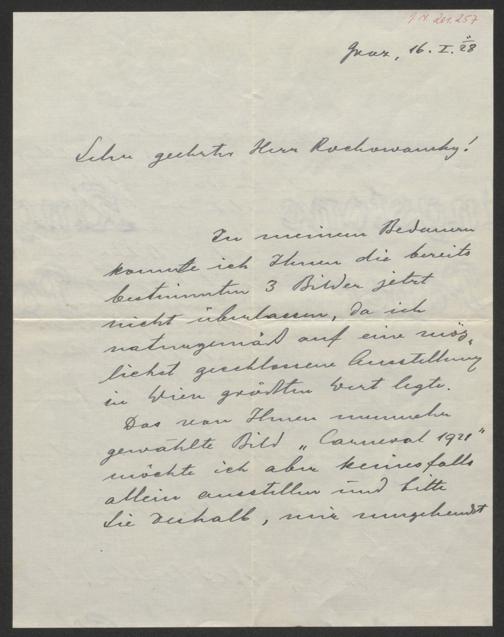 J.N. 201.257
Graz, 16. I. 28
Sehr geehrter Herr Rochowansky!
Zu meinem Bedauern
konnte ich Ihnen die bereits
bestimmten 3 Bilder jetzt
nicht überlassen, da ich
naturgemäß auf eine mög-
lichst geschlossene Ausstellung
in Wien größten Wert legte.
Das von Ihnen nunmehr
gewählte Bild „Carneval 1921“
möchte ich aber keinesfalls
allein ausstellen und bitte
Sie deshalb, mir umgehendst